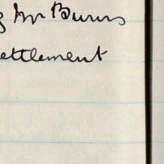 g Mr Burns
settlement